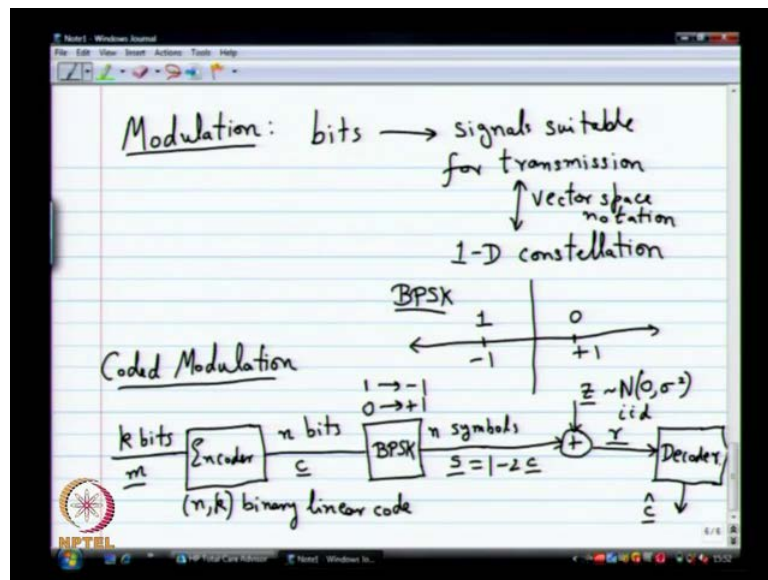 Note1 - Windows Journal
File Edit View Insert Actions Tools Help
Modulation: bits → signals suitable
for transmission
↕ vector space
notation
1-D constellation
BPSK
1 0
-1 +1
Coded Modulation
1 → -1
0 → +1
z ~ N(0, σ²)
iid
k bits
m
Encoder
n bits
c
BPSK
n symbols
s = 1-2c
+
r
Decoder
ĉ
(n,k) binary linear code
NPTEL
6/6
HP Total Care Advisor
Note1 - Windows Jo...
15:52